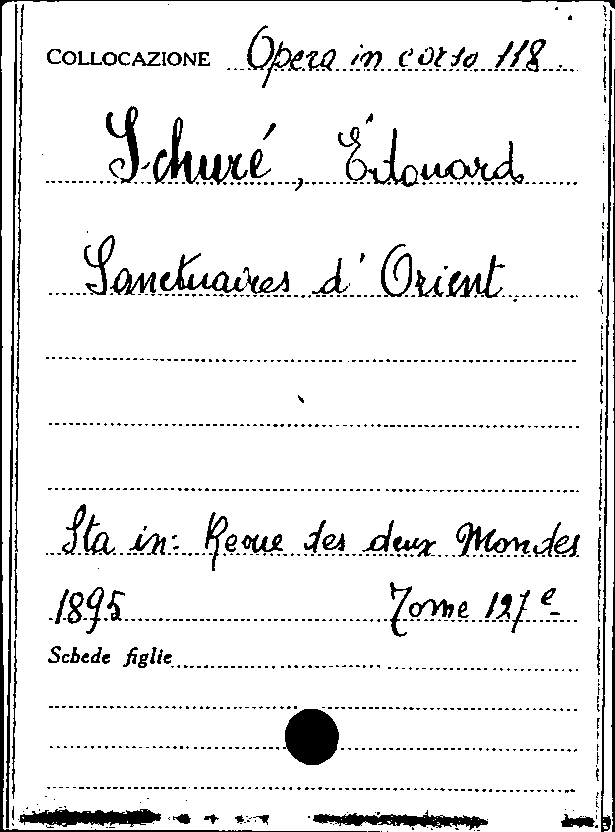 COLLOCAZIONE Opera in corso 118.
Schuré, Édouard
Sanctuaires d'Orient
Sta in: Revue des deux Mondes
1895 Tome 127e
Schede figlie